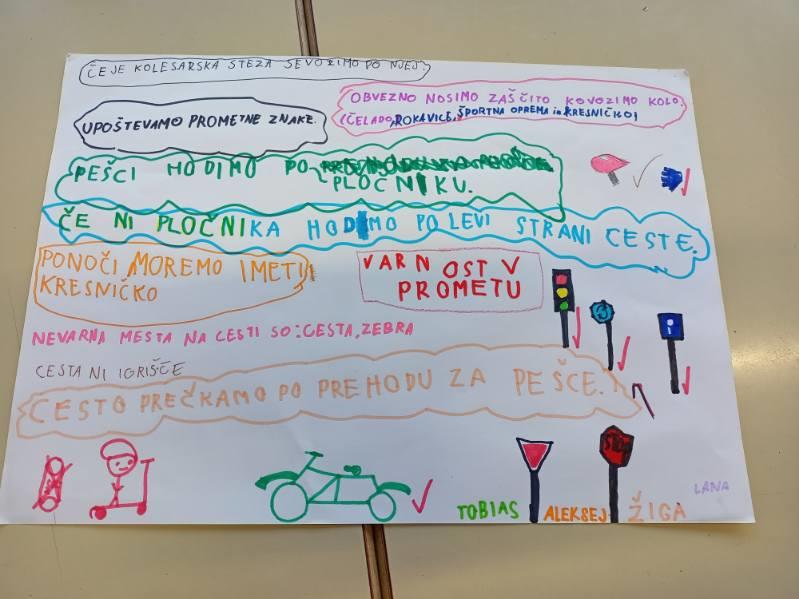 ČE JE KOLESARSKA STEZA SEVOZIMO PO NJEJ
OBVEZNO NOSIMO ZAŠČITO KOVOZIMO KOLO.
(ČELADO, ROKAVICE, ŠPORTNA OPREMA in KRESNIČKO)
UPOŠTEVAMO PROMETNE ZNAKE.
PEŠCI HODIMO PO
PLOČNIKU.
ČE NI PLOČNIKA HODIMO PO LEVI STRANI CESTE.
PONOČI MOREMO IMETI
KRESNIČKO
VARNOST V
PROMETU
NEVARNA MESTA NA CESTI SO: CESTA, ZEBRA
CESTA NI IGRIŠČE
CESTO PREČKAMO PO PREHODU ZA PEŠCE.
STOP
LANA
TOBIAS ALEKSEJ ŽIGA